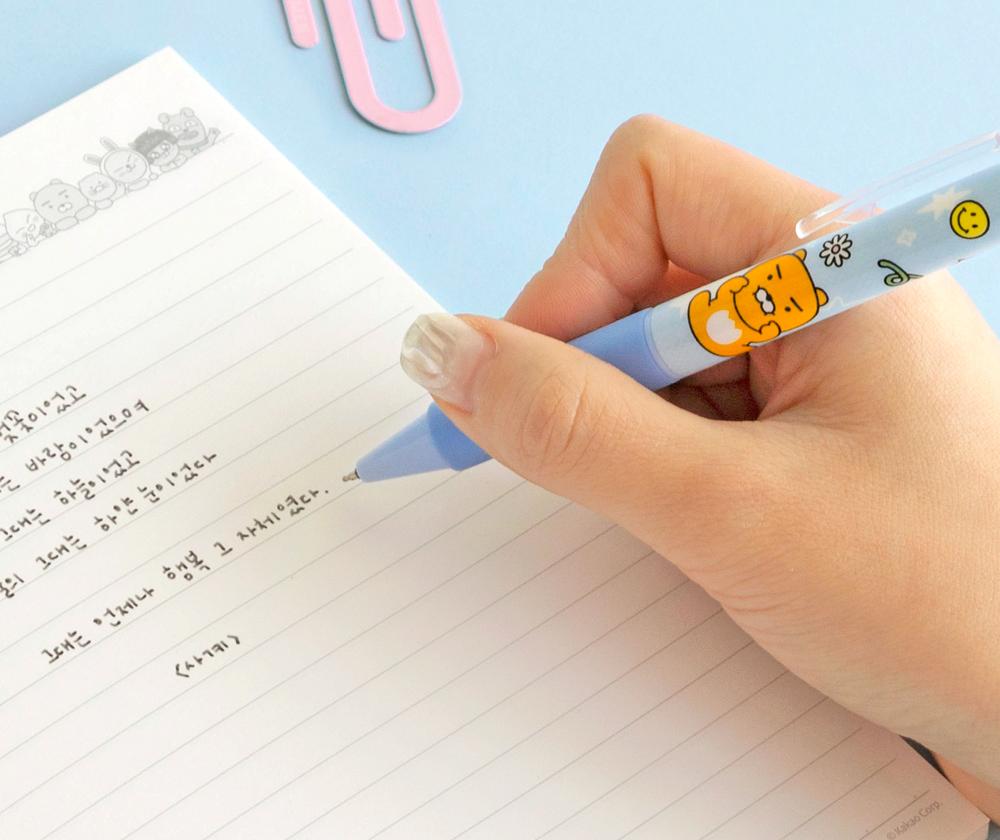 벚꽃이었고
는 바람이었으며
그대는 하늘이었고
그대는 하얀 눈이었다
그대는 언제나 행복 그 자체였다.
<사계>
© Kakao Corp.